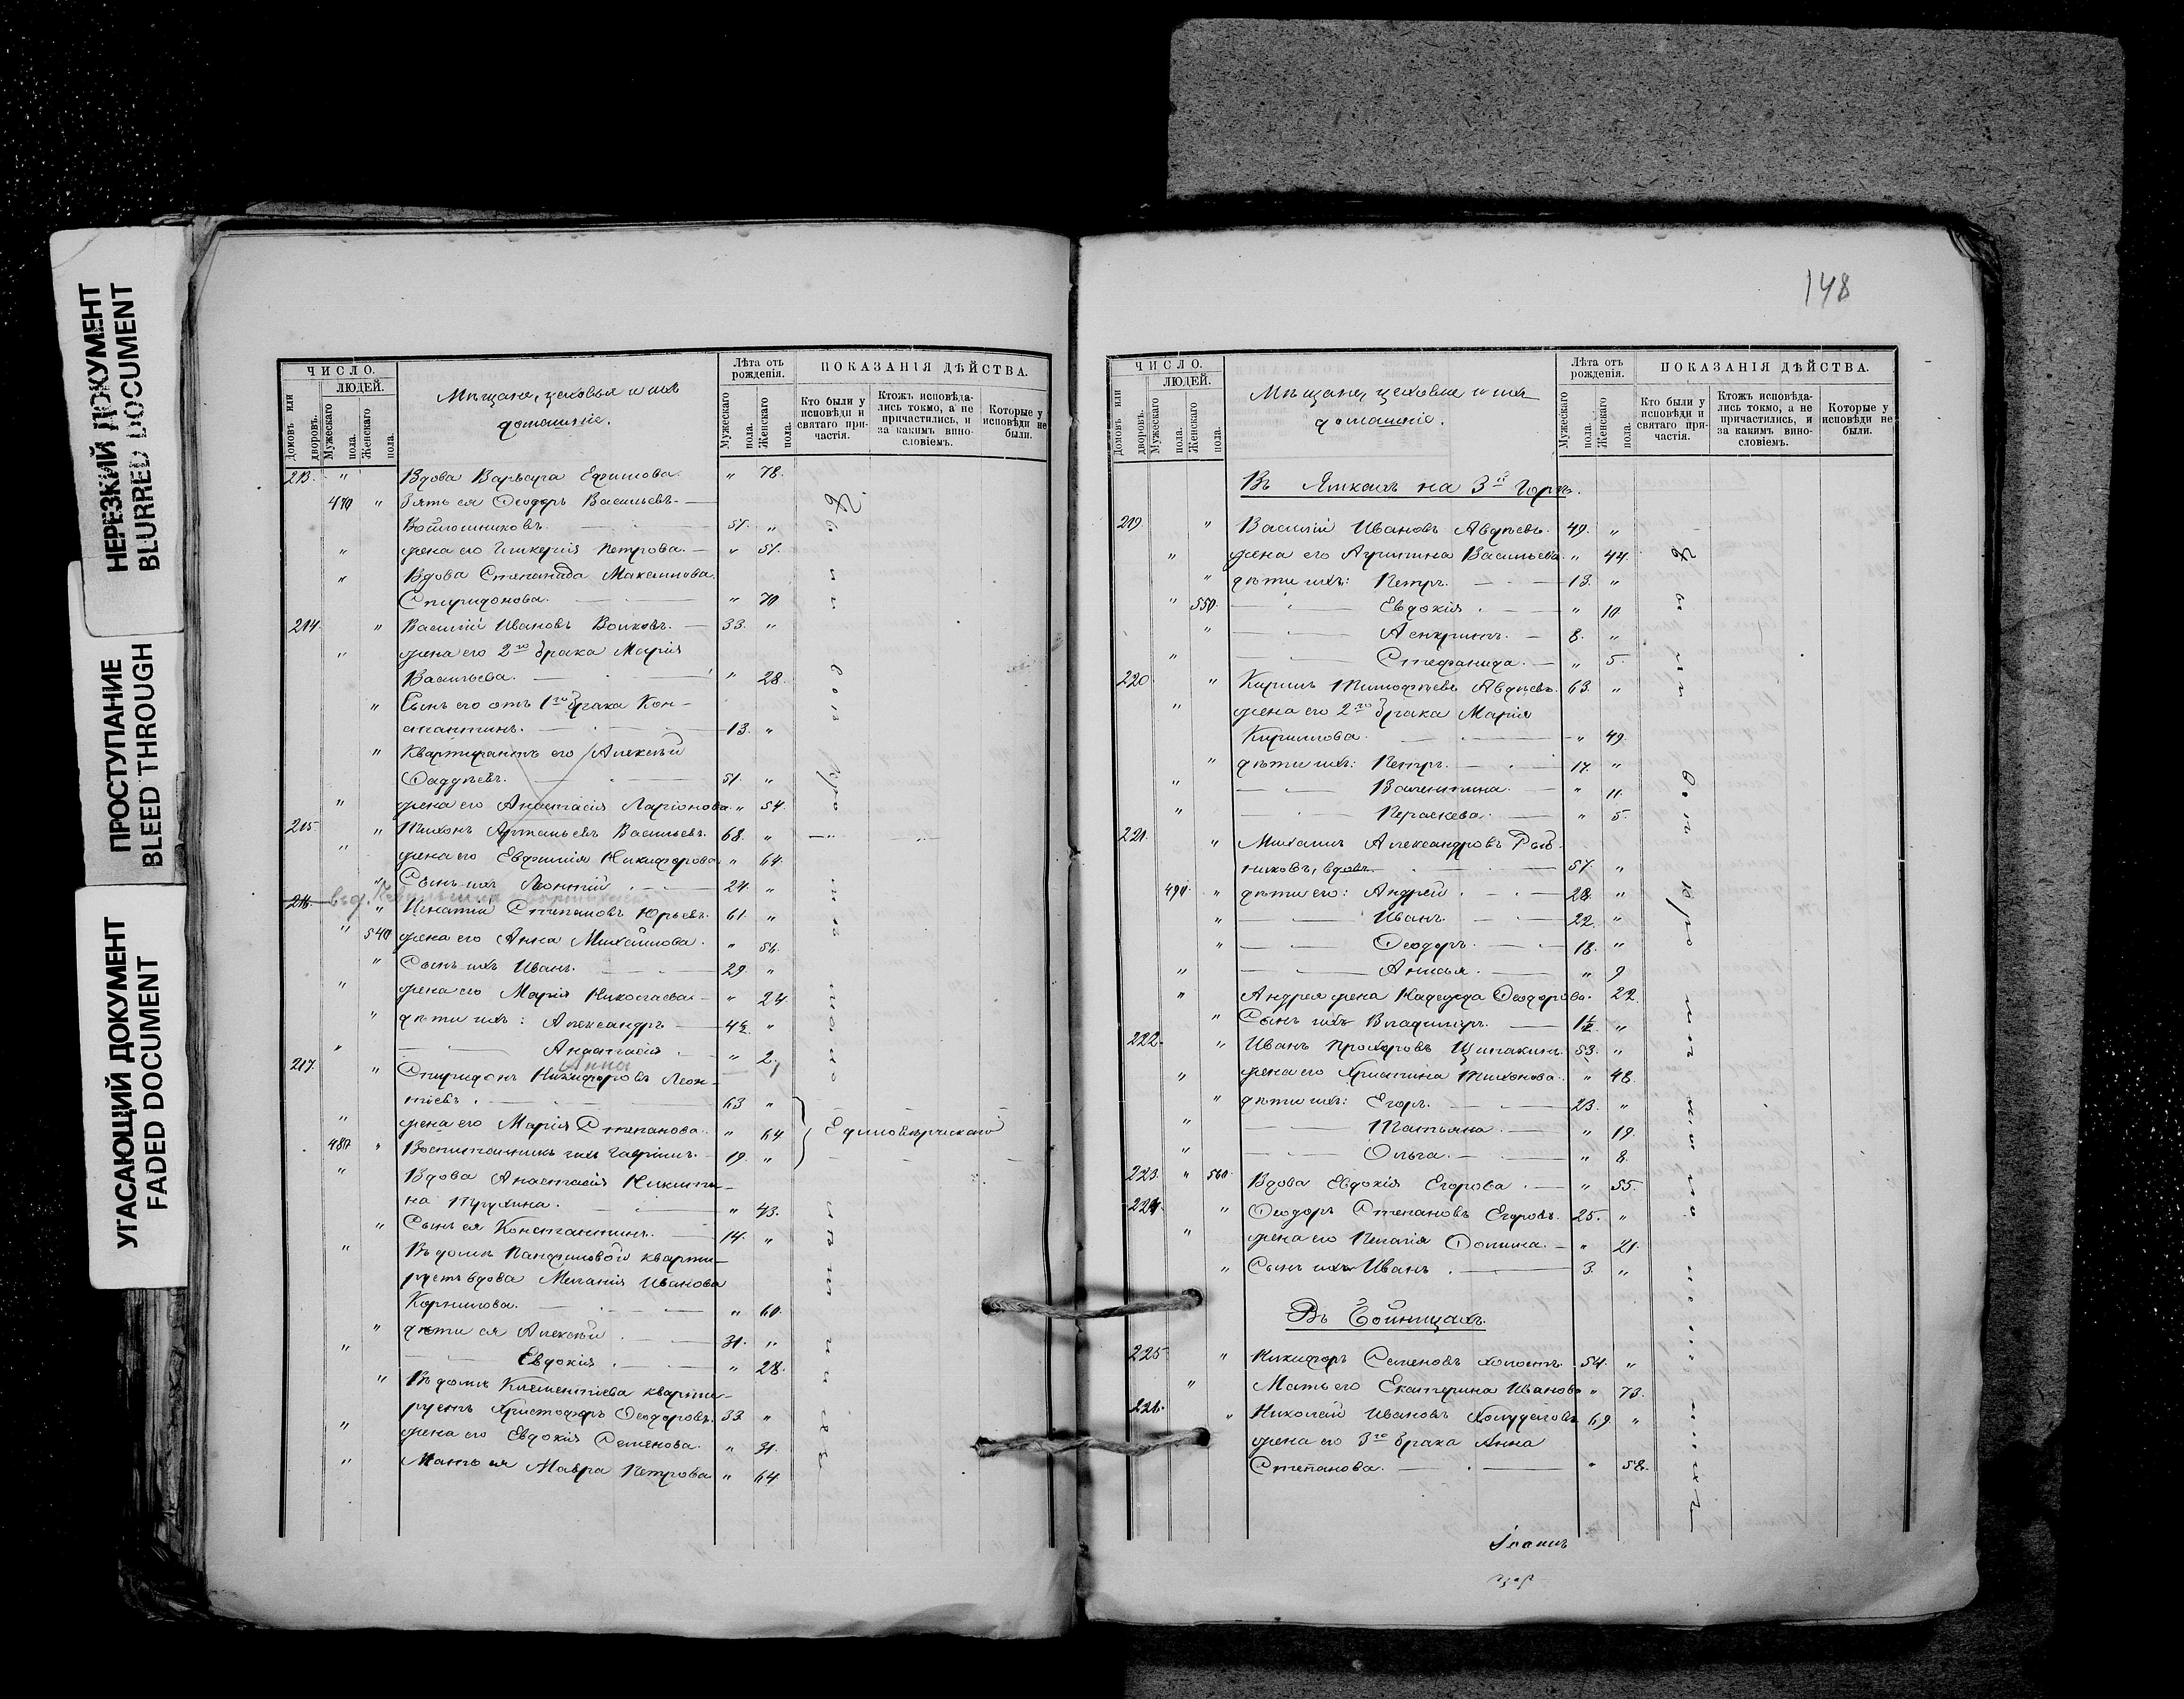 НЕРЕЗКИЙ ДОКУМЕНТ
BLURRED DOCUMENT
ПРОСТУПАНИЕ
BLEED THROUGH
УГАСАЮЩИЙ ДОКУМЕНТ
FADED DOCUMENT
ЧИСЛО.
ЛЮДЕЙ.
Домовъ или дворовъ.
Мужескаго пола.
Женскаго пола.
Мѣщане, цеховые и ихъ
домашніе.
Лѣта отъ рожденія.
Мужескаго пола.
Женскаго пола.
ПОКАЗАНІЯ ДѢЙСТВА.
Кто были у исповѣди и святаго причастія.
Ктожъ исповѣдались токмо, а не причастились, и за какимъ винословіемъ.
Которые у исповѣди не были.
213. " Вдова Варвара Ефимова. " 78.
470 " Зять ея Ѳеодоръ Васильевъ
51. "
" жена его Гликерія Петрова. " 51.
" Вдова Степанида Максимова
Спиридонова. " 70
214. " Василій Ивановъ Волковъ. 33. "
" жена его 2го брака Марія
Васильева. " 28.
" Сынъ его отъ 1го брака Кон-
стантинъ. 13. "
" Квартирантъ его Алексѣй
Ѳаддѣевъ. 51. "
" жена его Анастасія Ларіонова. " 54.
215 " Тихонъ Васильевъ. 68. "
" жена его Евфимія Никифорова " 64.
" Сынъ ихъ Леонтій 24. "
216 " Игнатій Степановъ Юрьевъ. 61. "
" 540 жена его Анна Михайлова. " 51.
" Сынъ ихъ Иванъ. 29. "
" жена его Марія Николаева " 24
" дѣти ихъ: Александръ 4½ "
" Анастасія " 2.
Анна 1
217. " Спиридонъ Никифоровъ Леон-
тіевъ. 63 "
" жена его Марія Степанова. " 64 Единовѣрческаго
480 " Воспитанникъ ихъ Гавріилъ. 19. "
" Вдова Анастасія Никити-
на " 43.
" Сынъ ея Константинъ. 14. "
" Въ домѣ Панфиловой кварти-
руетъ вдова Меланія Иванова
Корнилова. " 60.
" дѣти ея Алексѣй 31. "
" Евдокія " 28.
" Въ домѣ Клементіева кварти-
руетъ Христофоръ Ѳеодоровъ. 33. "
" жена его Евдокія Семенова. " 31.
" Мать ея Мавра Петрова " 64.
148
ЧИСЛО.
ЛЮДЕЙ.
Домовъ или дворовъ.
Мужескаго пола.
Женскаго пола.
Мѣщане, цеховые и ихъ
домашніе.
Лѣта отъ рожденія.
Мужескаго пола.
Женскаго пола.
ПОКАЗАНІЯ ДѢЙСТВА.
Кто были у исповѣди и святаго причастія.
Ктожъ исповѣдались токмо, а не причастились, и за какимъ винословіемъ.
Которые у исповѣди не были.
Въ Ямкахъ на 3й Горѣ.
219. " Василій Ивановъ Авдѣевъ. 49. "
" жена его Агриппина Васильева. " 44.
" дѣти ихъ: Петръ. 13. "
" 550. Евдокія. " 10
" Асинкритъ. 8. "
" Стефанида. " 5.
220 " Кирилъ Тимофѣевъ Авдѣевъ. 63. "
" жена его 2го брака Марія
Кириллова. " 49.
" дѣти ихъ: Петръ. 17. "
" Валентина. " 11.
" Параскева. " 5.
221. " Михаилъ Александровъ Рыб-
никовъ, вдовъ. 51. "
490 " дѣти его: Андрей 28. "
" Иванъ. 22. "
" Ѳеодоръ. 18. "
" Анисья. " 9
" Андрея жена Надежда Ѳеодорова. 22.
" Сынъ ихъ Владиміръ. 1½ "
222. " Иванъ Прохоровъ Щипакинъ. 53. "
" жена его Христина Тихонова. " 48.
" дѣти ихъ: Егоръ. 23. "
" Татьяна. " 19.
" Ольга. " 8.
223. " 560 Вдова Евдокія Егорова. " 55.
224. " Ѳеодоръ Степановъ Егоровъ. 25. "
" жена его Пелагія Ѳомина. " 21.
" Сынъ ихъ Иванъ. 3. "
Въ Бойницахъ.
225 " Никифоръ Семеновъ холостъ. 54. "
" Мать его Екатерина Иванова " 73.
226. " Николай Ивановъ 69 "
жена его 3го брака Анна
Степанова. " 58.